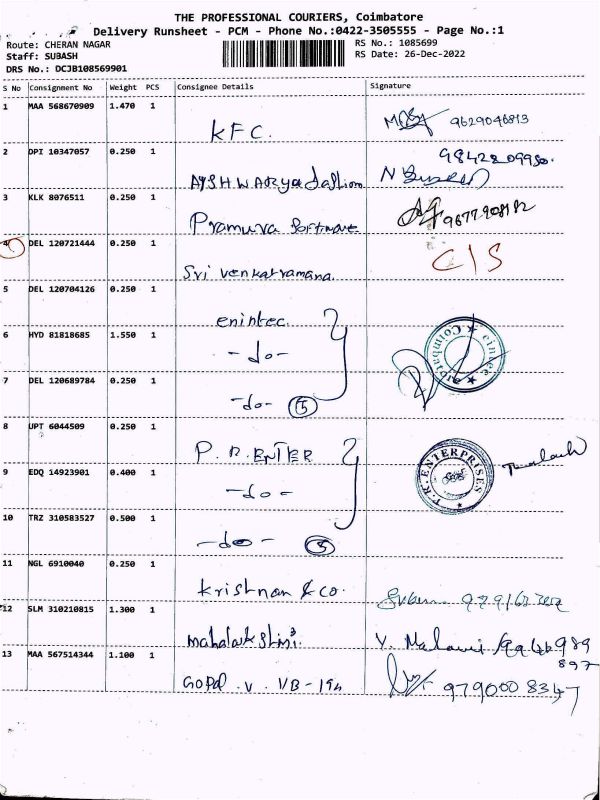 THE PROFESSIONAL COURIERS, Coimbatore
Delivery Runsheet - PCM - Phone No.:0422-3505555 - Page No.:1
Route: CHERAN NAGAR
Staff: SUBASH
DRS No.: DCJB108569901
RS No.: 1085699
RS Date: 26-Dec-2022
S No Consignment No Weight PCS Consignee Details Signature
1 MAA 568670909 1.470 1
KFC. 9629046813
2 DPI 10347057 0.250 1
AYSHWARYA fashion
3 KLK 8076511 0.250 1
Pramura Software
4 DEL 120721444 0.250 1
Sri Venkatramana. C/S
5 DEL 120704126 0.250 1
enintec.
6 HYD 81818685 1.550 1
-do-
Coimbatore
7 DEL 120689784 0.250 1
-do- 5
8 UPT 6044509 0.250 1
P.R. ENTER
P.R. ENTERPRISES
9 EDQ 14923901 0.400 1
-do-
10 TRZ 310583527 0.500 1
-do-
11 NGL 6910040 0.250 1
Krishnan & co.
12 SLM 310210815 1.300 1
Mahalakshmi
13 MAA 567514344 1.100 1
Gopal . V . VB-194 9790008347